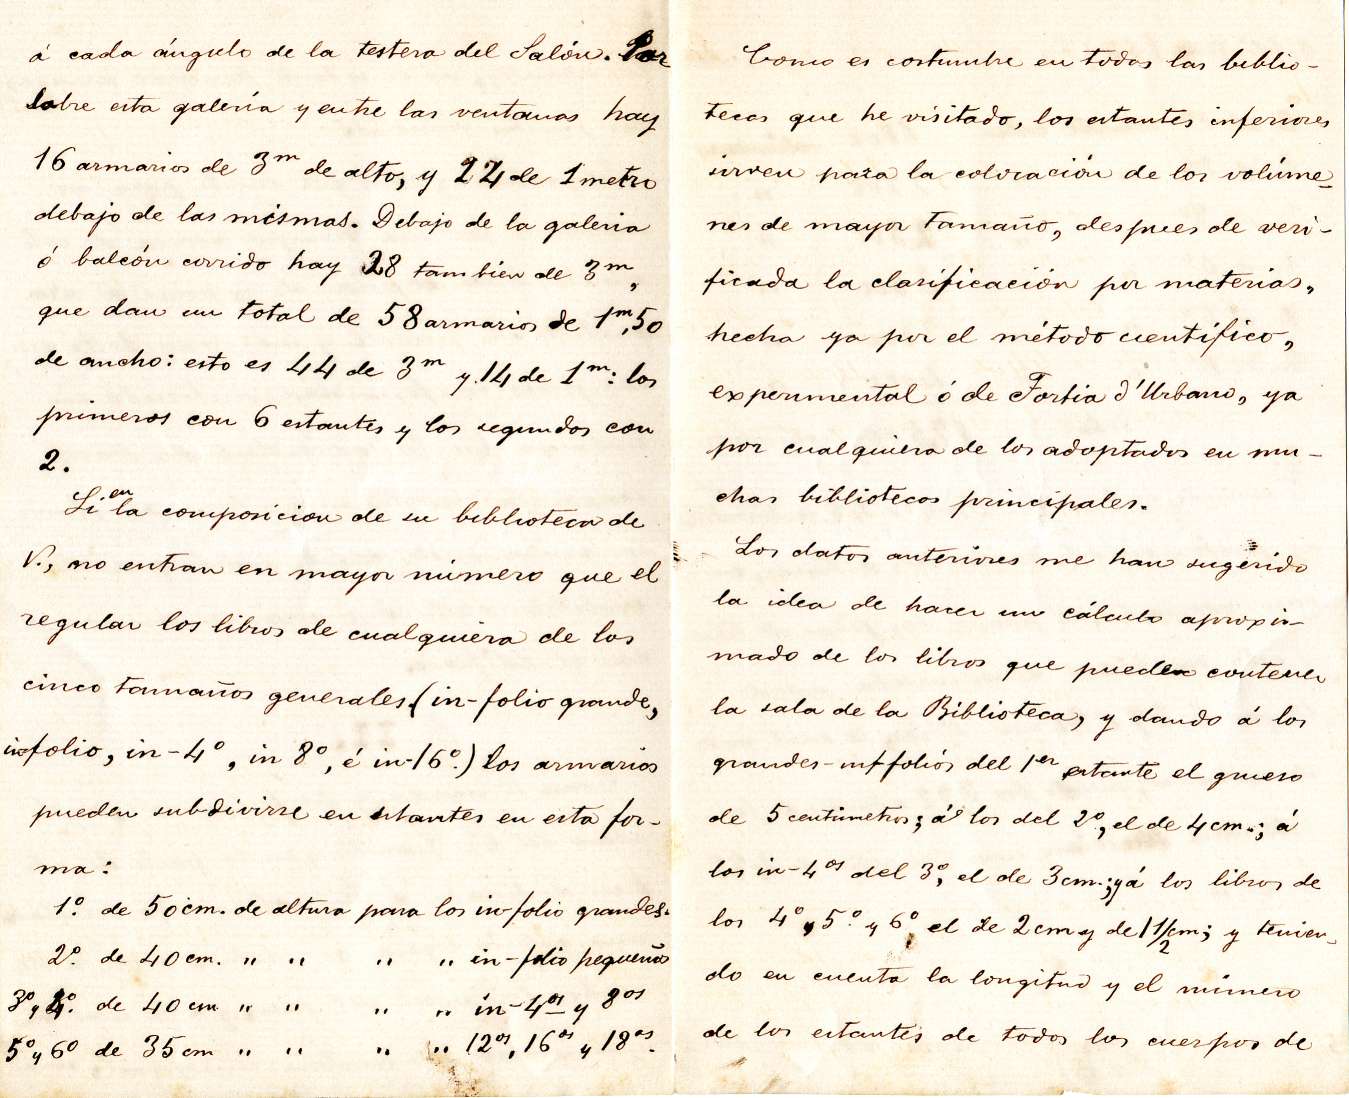 á cada ángulo de la testera del Salón. Por
sobre esta galería y entre las ventanas hay
16 armarios de 3m de alto, y 24 de 1 metro
debajo de las mismas. Debajo de la galeria
ó balcón corrido hay 28 tambien de 3m,
que dan un total de 58 armarios de 1m,50
de ancho: esto es 44 de 3m y 14 de 1m: los
primeros con 6 estantes y los segundos con
2.
Si en la composicion de su biblioteca de
V., no entran en mayor número que el
regular los libros de cualquiera de los
cinco tamaños generales (in-folio grande,
in-folio, in-4º, in 8º, é in-16º.) los armarios
pueden subdivirse en estantes en esta for-
ma:
1º. de 50 cm. de altura para los in-folio grandes.
2º. de 40 cm. " " " " in-folio pequeños
3º, y 4º. de 40 cm " " " " in-4os y 8os
5º y 6º de 35 cm " " " " 12os, 16os y 18os.
Como es costumbre en todas las biblio-
tecas que he visitado, los estantes inferiores
sirven para la colocación de los volúme-
nes de mayor tamaño, despues de veri-
ficada la clasificación por materias,
hecha ya por el método científico,
experimental ó de Fortia d'Urbano, ya
por cualquiera de los adoptados en mu-
chas bibliotecas principales.
Los datos anteriores me han sugerido
la idea de hacer un cálculo aproxi-
mado de los libros que pueden contener
la sala de la Biblioteca, y dando á los
grandes in-folios del 1er estante el grueso
de 5 centimetros; á los del 2º, el de 4 cm.; á
los in-4os del 3º, el de 3 cm.; y á los libros de
los 4º, 5º. y 6º el de 2 cm y de 1 1/2 cm; y tenien-
do en cuenta la longitud y el número
de los estantes de todos los cuerpos de